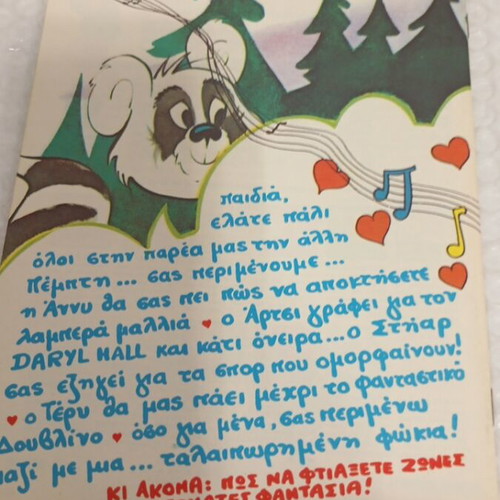 παιδιά,
ελάτε πάλι
όλοι στην παρέα μας την άλλη
Πέμπτη... σας περιμένουμε...
η Άννυ θα σας πει πώς να αποκτήσετε
λαμπερά μαλλιά ♥ ο Άρτσι γράφει για τον
DARYL HALL και κάτι όνειρα... ο Στήαρ
σας εξηγεί για τα σπορ που ομορφαίνουν!
♥ ο Τέρυ θα μας πάει μέχρι το φανταστικό
Δουβλίνο ♥ όσο για μένα, σας περιμένω
μαζί με μια... ταλαιπωρημένη φώκια!
ΚΙ ΑΚΟΜΑ: ΠΩΣ ΝΑ ΦΤΙΑΞΕΤΕ ΖΩΝΕΣ
ΦΑΝΤΑΣΙΑ!